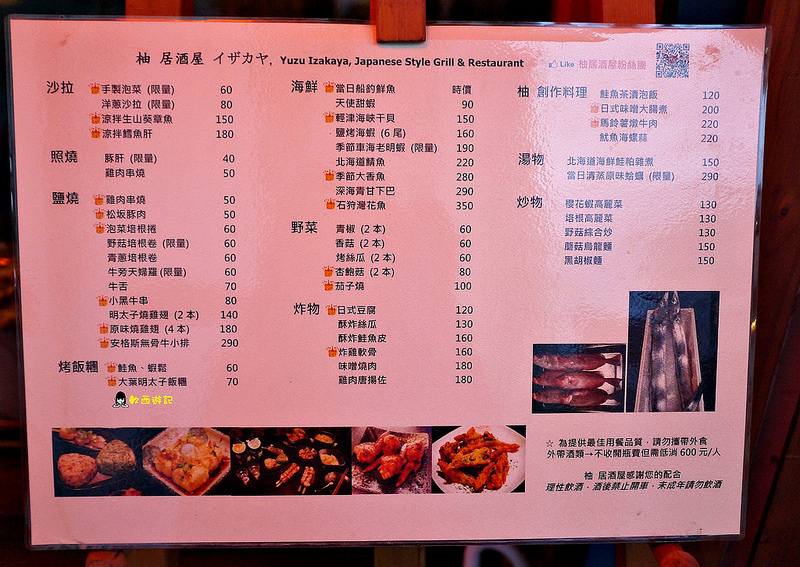 柚 居酒屋 イザカヤ, Yuzu Izakaya, Japanese Style Grill & Restaurant
Like 柚居酒屋粉絲團
沙拉
手製泡菜 (限量) 60
洋蔥沙拉 (限量) 80
涼拌生山葵章魚 150
涼拌鱈魚肝 180
照燒
豚肝 (限量) 40
雞肉串燒 50
鹽燒
雞肉串燒 50
松坂豚肉 50
泡菜培根捲 60
野菇培根卷 (限量) 60
青蔥培根卷 60
牛旁天婦羅 (限量) 60
牛舌 70
小黑牛串 80
明太子燒雞翅 (2 本) 140
原味燒雞翅 (4 本) 180
安格斯無骨牛小排 290
烤飯糰
鮭魚、蝦鬆 60
大葉明太子飯糰 70
軟西遊記
海鮮
當日船釣鮮魚 時價
天使甜蝦 90
輕津海峽干貝 150
鹽烤海蝦 (6 尾) 160
季節車海老明蝦 (限量) 190
北海道鯖魚 220
季節大香魚 280
深海青甘下巴 290
石狩灣花魚 350
野菜
青椒 (2 本) 60
香菇 (2 本) 60
烤絲瓜 (2 本) 60
杏鮑菇 (2 本) 80
茄子燒 100
炸物
日式豆腐 120
酥炸絲瓜 130
酥炸鮭魚皮 160
炸雞軟骨 160
味噌燒肉 180
雞肉唐揚佐 180
柚 創作料理
鮭魚茶漬泡飯 120
日式味噌大腸煮 200
馬鈴薯燉牛肉 220
魷魚海螺蒜 220
湯物
北海道海鮮鮭粕雜煮 150
當日清蒸原味蛤蠣 (限量) 290
炒物
櫻花蝦高麗菜 130
培根高麗菜 130
野菇綜合炒 130
蘑菇烏龍麵 150
黑胡椒麵 150
☆ 為提供最佳用餐品質，請勿攜帶外食
外帶酒類→不收開瓶費但需低消 600 元/人
柚 居酒屋感謝您的配合
理性飲酒，酒後禁止開車，未成年請勿飲酒